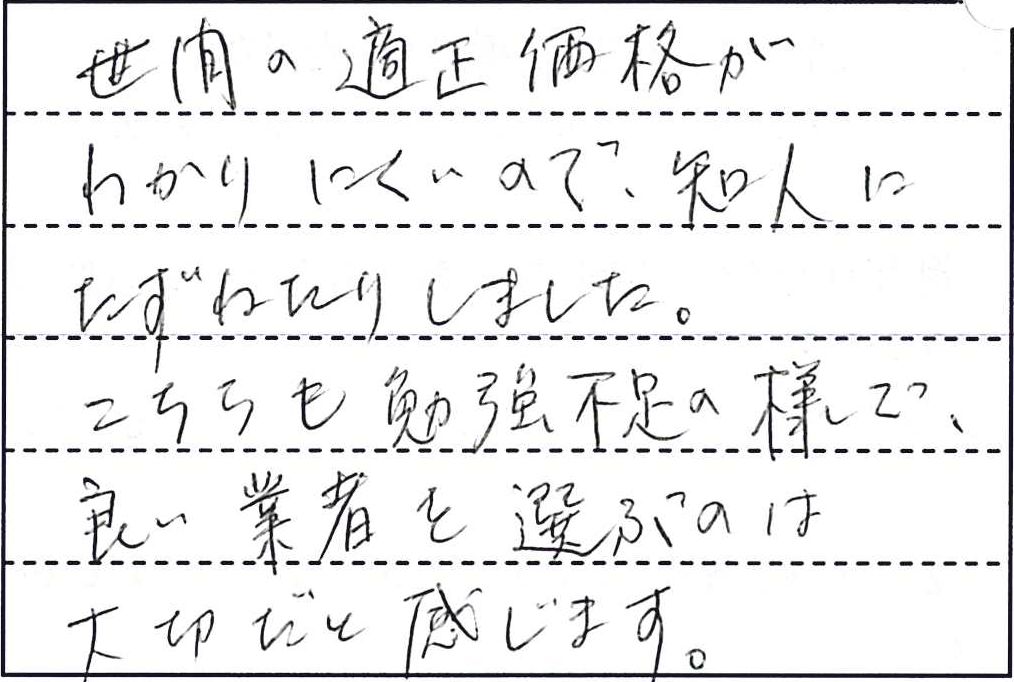 世間の適正価格が
わかりにくいので、知人に
たずねたりしました。
こちらも勉強不足の様で、
良い業者を選ぶのは
大切だと感じます。